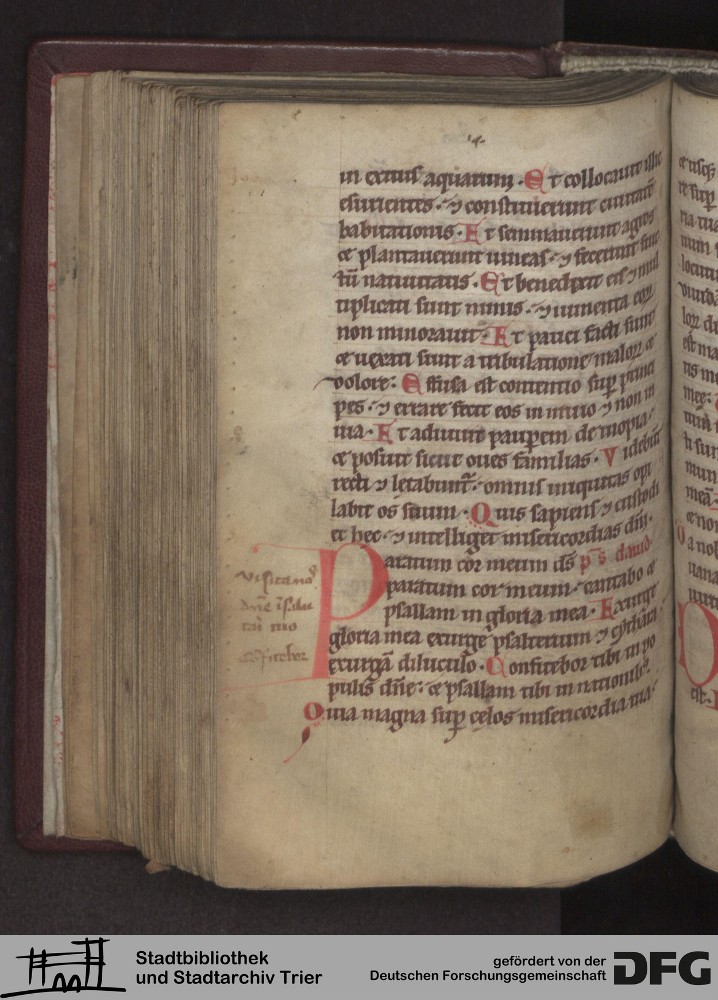 in exitus aquarum. Et collocauit illic
esurientes. ⁊ constituerunt ciuitatē
habitationis. Et seminauerunt agros
et plantauerunt uineas. ⁊ fecerunt fruc
tū natiuitatis. Et benedixit eis ⁊ mul
tiplicati sunt nimis. ⁊ iumenta eoꝝ
non minorauit. Et pauci facti sunt
et uexati sunt a tribulatione maloꝝ et
dolore: Effusa est contentio suꝑ princi
pes. ⁊ errare fecit eos in inuio ⁊ non in
uia. Et adiuuit pauperem de inopia.
et posuit sicut oues familias. Videbūt
recti ⁊ letabunt̃. omnis iniquitas opi
labit os suum. Quis sapiens ⁊ custodi
et hec. ⁊ intelliget misericordias dn̄i.
Paratum cor meum ds̄ p̄s dauid.
paratum cor meum. cantabo et
psallam in gloria mea. Exurge
gloria mea exurge psalterium ⁊ cythara
exurgā diluculo. Confitebor tibi in po
pulis dn̄e: et psallam tibi in nationib;
Quia magna suꝑ celos misericordia tua.
Stadtbibliothek
und Stadtarchiv Trier
gefördert von der
Deutschen Forschungsgemeinschaft
DFG